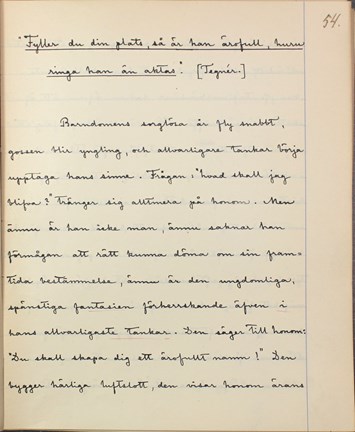 54.
"Fyller du din plats, så är han ärofull, huru
ringa han än aktas." [Tegnér.]
Barndomens sorglösa år fly snabbt,
gossen blir yngling, och allvarligare tankar börja
upptaga hans sinne. Frågan: "hvad skall jag
blifva?" tränger sig alltmera på honom. Men
ännu är han icke man, ännu saknar han
förmågan att rätt kunna döma om sin fram-
tida bestämmelse, ännu är den ungdomliga,
spänstiga fantasien förherrskande äfven i
hans allvarligaste tankar. Den säger till honom:
"Du skall skapa dig ett ärofullt namn!" Den
bygger härliga luftslott, den visar honom ärans